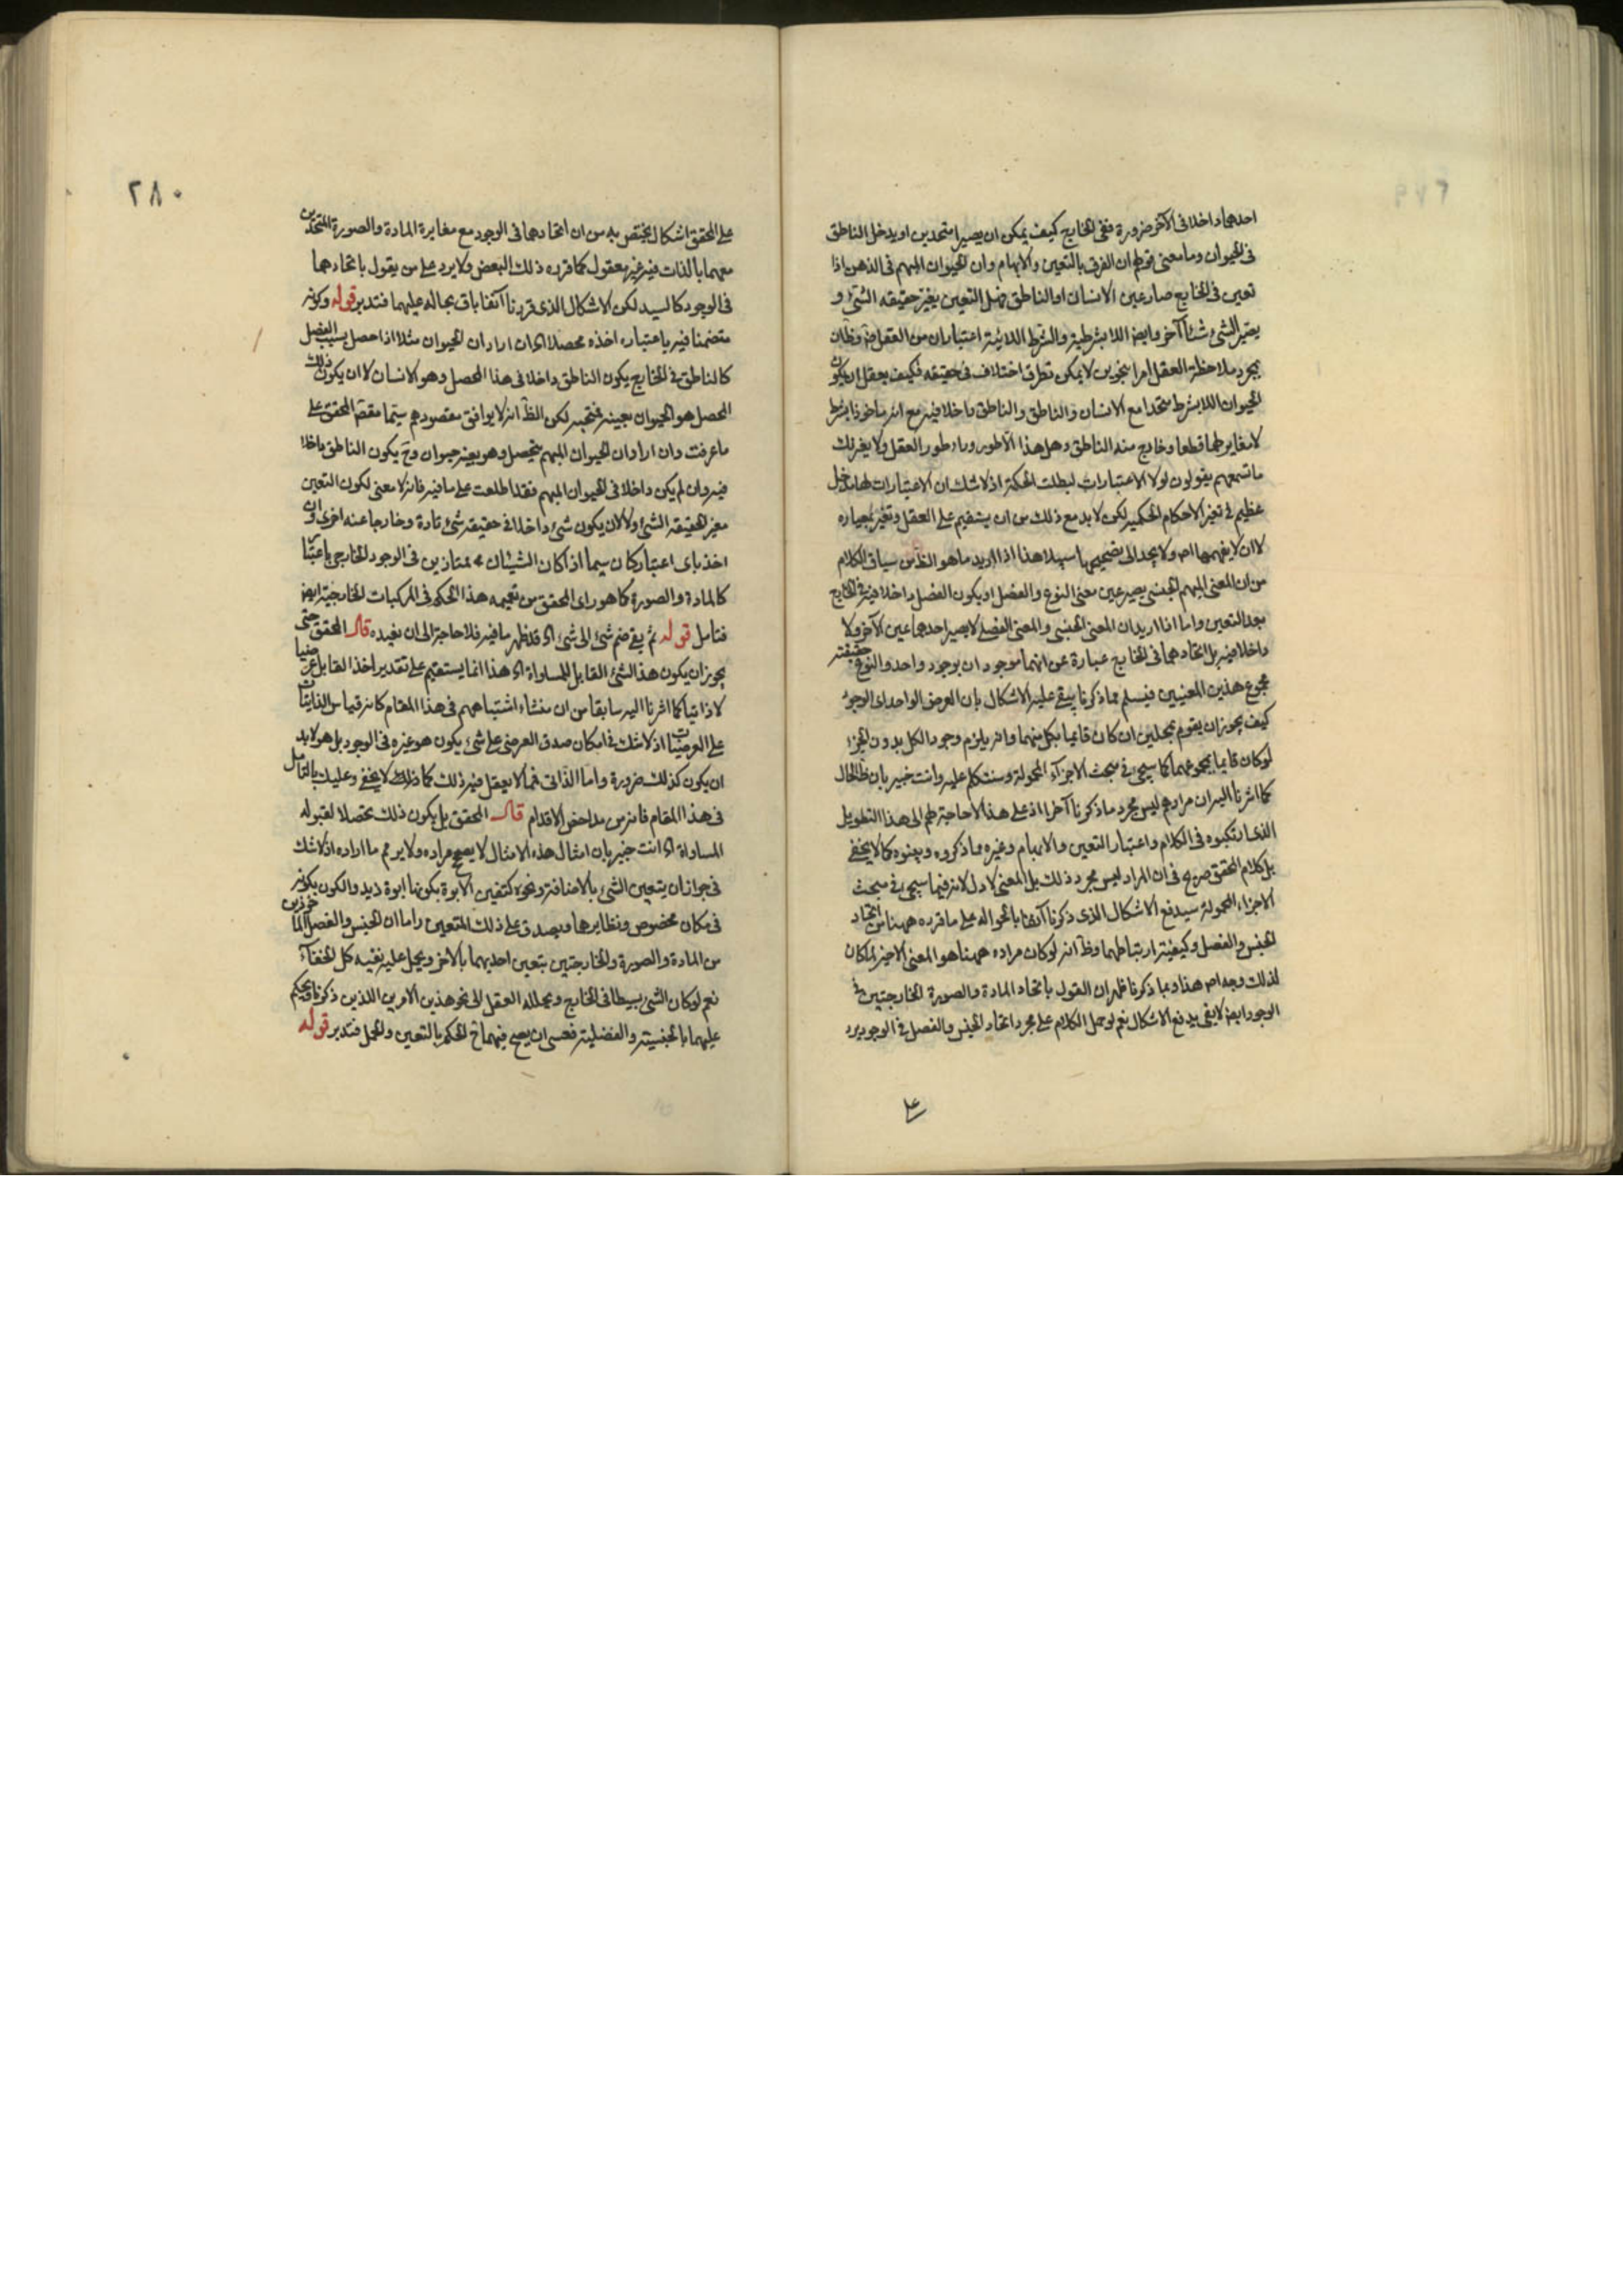 احدهما داخلا فى الآخر ضرورة ففى الخارج كيف يمكن ان يصيرا متحدين او يدخل الناطق
فى الحيوان وما معنى قولهم ان الفرق بالتعين والابهام وان الحيوان المبهم فى الذهن اذا
تعين فى الخارج صار عين الانسان او الناطق فهل التعين يغير حقيقه الشئ و
يصير الشئ شيئا آخر وايضا اللابشرطية والشرط اللائية اعتباران من العقل فى وظ ان
بمجرد ملاحظة العقل امرا بنحوين لا يمكن تطرق اختلاف فى حقيقه فكيف يعقل ان يكون
الحيوان اللابشرط متحدا مع الانسان والناطق والناطق داخلا فيه مع انه ماخوذا بشرط
لا مغاير لهما قطعا وخارج منه الناطق وهل هذا الا طور وراء طور العقل ولا يغرنك
ما تسمعهم يقولون لولا الاعتبارات لبطلت الحكمة اذ لا شك ان الاعتبارات لها مدخل
عظيم فى تغير الاحكام الحكمية لكن لا بد مع ذلك من ان يستقيم على العقل وتغير بمعياره
لا ان لا يفهمها احد ولا يجد الى تصحيحها سبيلا هذا اذا اريد ما هو الظ من سياق الكلام
من ان المعنى المبهم الجنسى يصير عين معنى النوع والفصل او يكون الفصل داخلا فيه فى الخارج
بعد التعين واما اذا اريد ان المعنى الجنسى والمعنى الفصلى لا يصير احدهما عين الآخر ولا
داخلا فيه بل اتحادهما فى الخارج عبارة عن انهما موجودان بوجود واحد والنوع حقيقته
مجموع هذين المعنيين فيسلم مما ذكرنا يبقى عليه الاشكال بان العرض الواحد اى الوجود
كيف يجوز ان يقوم بمحلين ان كان قايما بكل منهما وانه يلزم وجود الكل بدون الجزء
لو كان قايما بمجموعهما كما سيجئ فى مبحث الاجزاء المحمولة وسنتكلم عليه وانت خبير بان ظ الحال
كما اشرنا اليه ان مرادهم ليس مجرد ما ذكرنا آخرا اذ على هذا لا حاجة لهم الى هذا التطويل
الذى ارتكبوه فى الكلام واعتبار التعين والابهام وغيره مما ذكروه وبينوه كما لا يخفى
بل كلام المحقق صريح فى ان المراد ليس مجرد ذلك بل المعنى الاول لانه فيما سيجئ فى مبحث
الاجزاء المحمولة سيدفع الاشكال الذى ذكرنا آنفا بالحواله على ما قرره ههنا من اتحاد
الجنس والفصل وكيفية ارتباطهما وظ انه لو كان مراده ههنا هو المعنى الاخير لما كان
لذلك وجه اصلا هذا وبما ذكرنا ظهر ان القول باتحاد المادة والصورة الخارجيتين فى
الوجود ايضا لا يفى بدفع الاشكال نعم لو حمل الكلام على مجرد اتحاد الجنس والفصل فى الوجود يرد
على
٢٨٠
على المحقق اشكال يختص به من ان اتحادهما فى الوجود مع مغايرة المادة والصورة المتحدين
معهما بالذات فيه غير معقول كما قرره ذلك البعض ولا يرد على من يقول باتحادهما
فى الوجود كالسيد لكن الاشكال الذى قررنا آنفا باق بحاله عليهما فتدبر قوله وكونه
متضمنا فيه باعتبار اخذه محصلا اى ان اراد ان الحيوان مثلا اذا حصل بسبب الفصل
كالناطق فى الخارج يكون الناطق داخلا فى هذا المحصل وهو الانسان لا ان يكون ذلك
المحصل هو الحيوان بعينه فتجه لكن الظ انه لا يوافق مقصودهم سيما مقصد المحقق على
ما عرفت وان اراد ان الحيوان المبهم يتحصل وهو بعينه حيوان وح يكون الناطق داخلا
فيه وان لم يكن داخلا فى الحيوان المبهم فقد اطلعت على ما فيه فانه لا معنى لكون التعين
مغير الحقيقه الشئ ولا لان يكون شئ داخلا فى حقيقه شئ تارة وخارجا عنه اخرى وان
اخذ باى اعتبار كان سيما اذا كان الشيئان ممتازين فى الوجود الخارجى باعتبار
كالمادة والصورة كما هو راى المحقق من تعميمه هذا الحكم فى المركبات الخارجية ايضا
فتامل قوله ثم يقع ضم شئ الى شئ اى قد ظهر ما فيه فلا حاجة الى ان نعيده قال المحقق حتى
يجوز ان يكون هذا الشئ القابل للمساواة اى هذا انما يستقيم على تقدير اخذ القابل عرضيا
لا ذاتيا كما اشرنا اليه سابقا من ان منشاء اشتباههم فى هذا المقام كانه قياس الذاتيات
على العرضيات اذ لا شك فى امكان صدق العرضى على شئ يكون هو غيره فى الوجود بل هو لا بد
ان يكون كذلك ضرورة واما الذاتى فما لا يعقل فيه ذلك كما لا يخفى وعليك بالتامل
فى هذا المقام فانه من مداحض الاقدام قال المحقق بل يكون ذلك تحصلا لقبوله
المساواة اى انت خبير بان امثال هذه الامثال لا يصحح مراده ولا يروم ما اراده اذ لا شك
فى جواز ان يتعين الشئ بالاضافة ونحوه كتعين الابوة بكونها ابوة زيد والكون بكونه
فى مكان مخصوص ونظايرها ويصدق على ذلك المتعين واما ان الجنس والفصل الماخوذين
من المادة والصورة والخارجتين يتعين احديهما بالاخر ويحمل عليه ففيه كل الخفاء
نعم لو كان الشئ بسيطا فى الخارج ويحلله العقل الى نحو هذين الامرين اللذين ذكرنا ويحكم
عليهما بالجنسية والفصلية فعسى ان يصح فيهما ح الحكم بالتعين والحمل فتدبر قوله